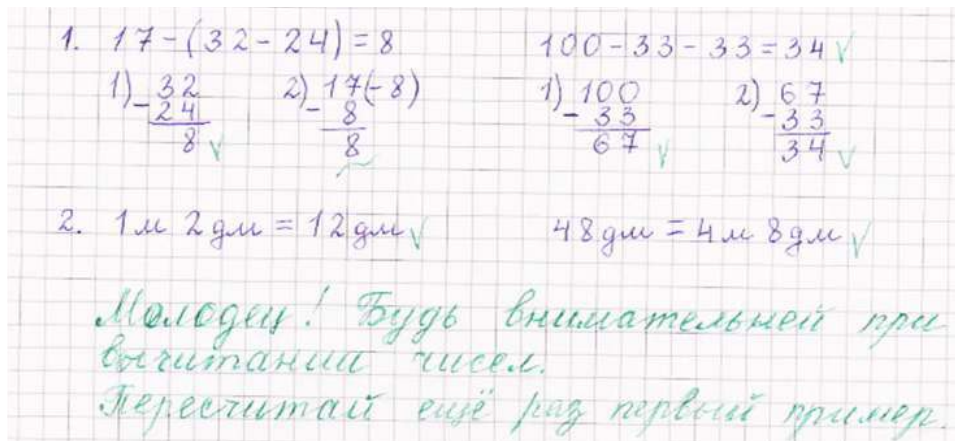 1. 17-(32-24)=8 100-33-33=34
1) 32 2) 17(-8) 1) 100 2) 67
- 24 - 8 - 33 - 33
8 8 67 34
2. 1м 2дм = 12дм 48дм = 4м 8дм
Молодец! Будь внимательней при
вычитании чисел.
Пересчитай ещё раз первый пример.